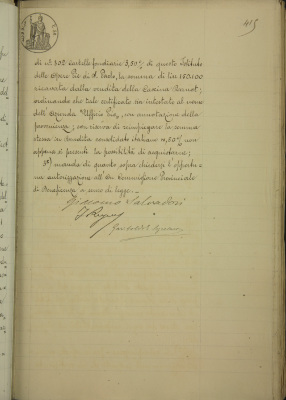 415
di N. 302 cartelle fondiarie 3,50% di questo Istituto
delle Opere Pie di S. Paolo, la somma di Lire 150.100
ricavata dalla vendita della Cascina
ordinando che tale certificato sia intestato al nome
dell'Azienda "Ufficio Pio", con annotazione della
provenienza; con riserva di rimpiegare la somma
stessa in Rendita consolidato italiano 4,50% non
appena si presenti la possibilità di acquistarne;
3°) manda di quanto sopra chiedersi l'opportu-
na autorizzazione all'On. Commissione Provinciale
di Beneficenza a senso di legge.
Giacomo Salvadori